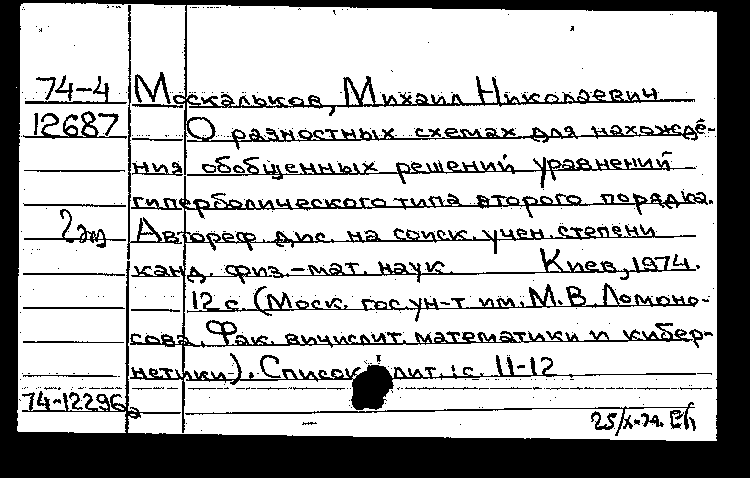 74-4 Москальков, Михаил Николаевич
12687 О разностных схемах для нахожде-
ния обобщенных решений уравнений
гиперболического типа второго порядка.
2 экз Автореф. дис. на соиск. учен. степени
канд. физ.-мат. наук. Киев, 1974.
12 с. (Моск. гос. ун-т им. М.В. Ломоно-
сова. Фак. вичислит. математики и кибер-
нетики). Список лит.: с. 11-12.
74-12296
25/X-74.